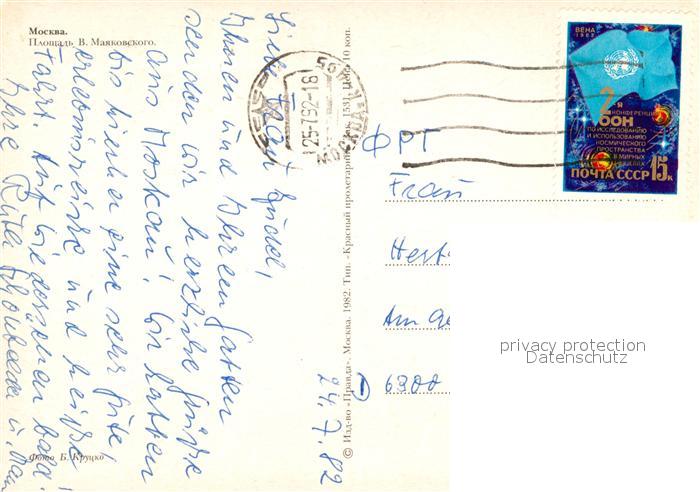 Москва.
Площадь В. Маяковского.
Liebe Frau
Ihnen und Ihrem Gatten
senden wir herzliche Grüße
aus Moskau! Wir hatten
bis hierher eine sehr gute,
und heiße
Fahrt. Auf Wiedersehen bald!
Ihre Rita
24.7.82
Фото Б. Круцко
© Изд-во «Правда». Москва. 1982. Тип. «Красный пролетарий». Зак. 1531. Цена 10 коп.
МОСКВА
25-7.82-16
ВЕНА
1982
2-я
КОНФЕРЕНЦИЯ
ООН
ПО ИССЛЕДОВАНИЮ
И ИСПОЛЬЗОВАНИЮ
КОСМИЧЕСКОГО
ПРОСТРАНСТВА
В МИРНЫХ
ЦЕЛЯХ
15к
ПОЧТА СССР
ФРГ
Frau
Am
6300
privacy protection
Datenschutz